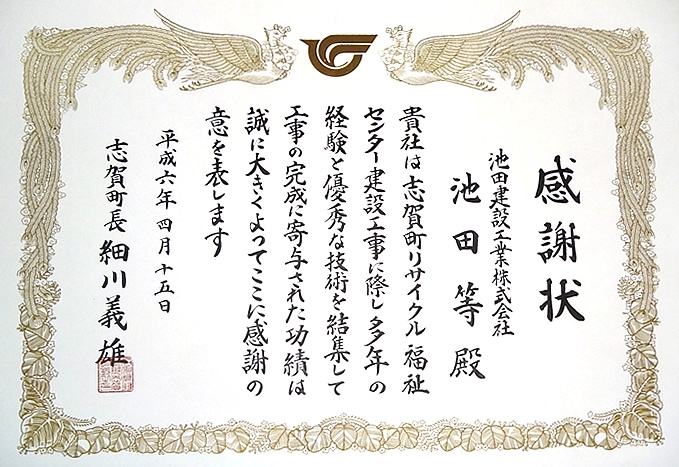 感謝状
池田建設工業株式会社
池田等殿
貴社は志賀町リサイクル福祉
センター建設工事に際し多年の
経験と優秀な技術を結集して
工事の完成に寄与された功績は
誠に大きくよってここに感謝の
意を表します
平成六年四月十五日
志賀町長細川義雄